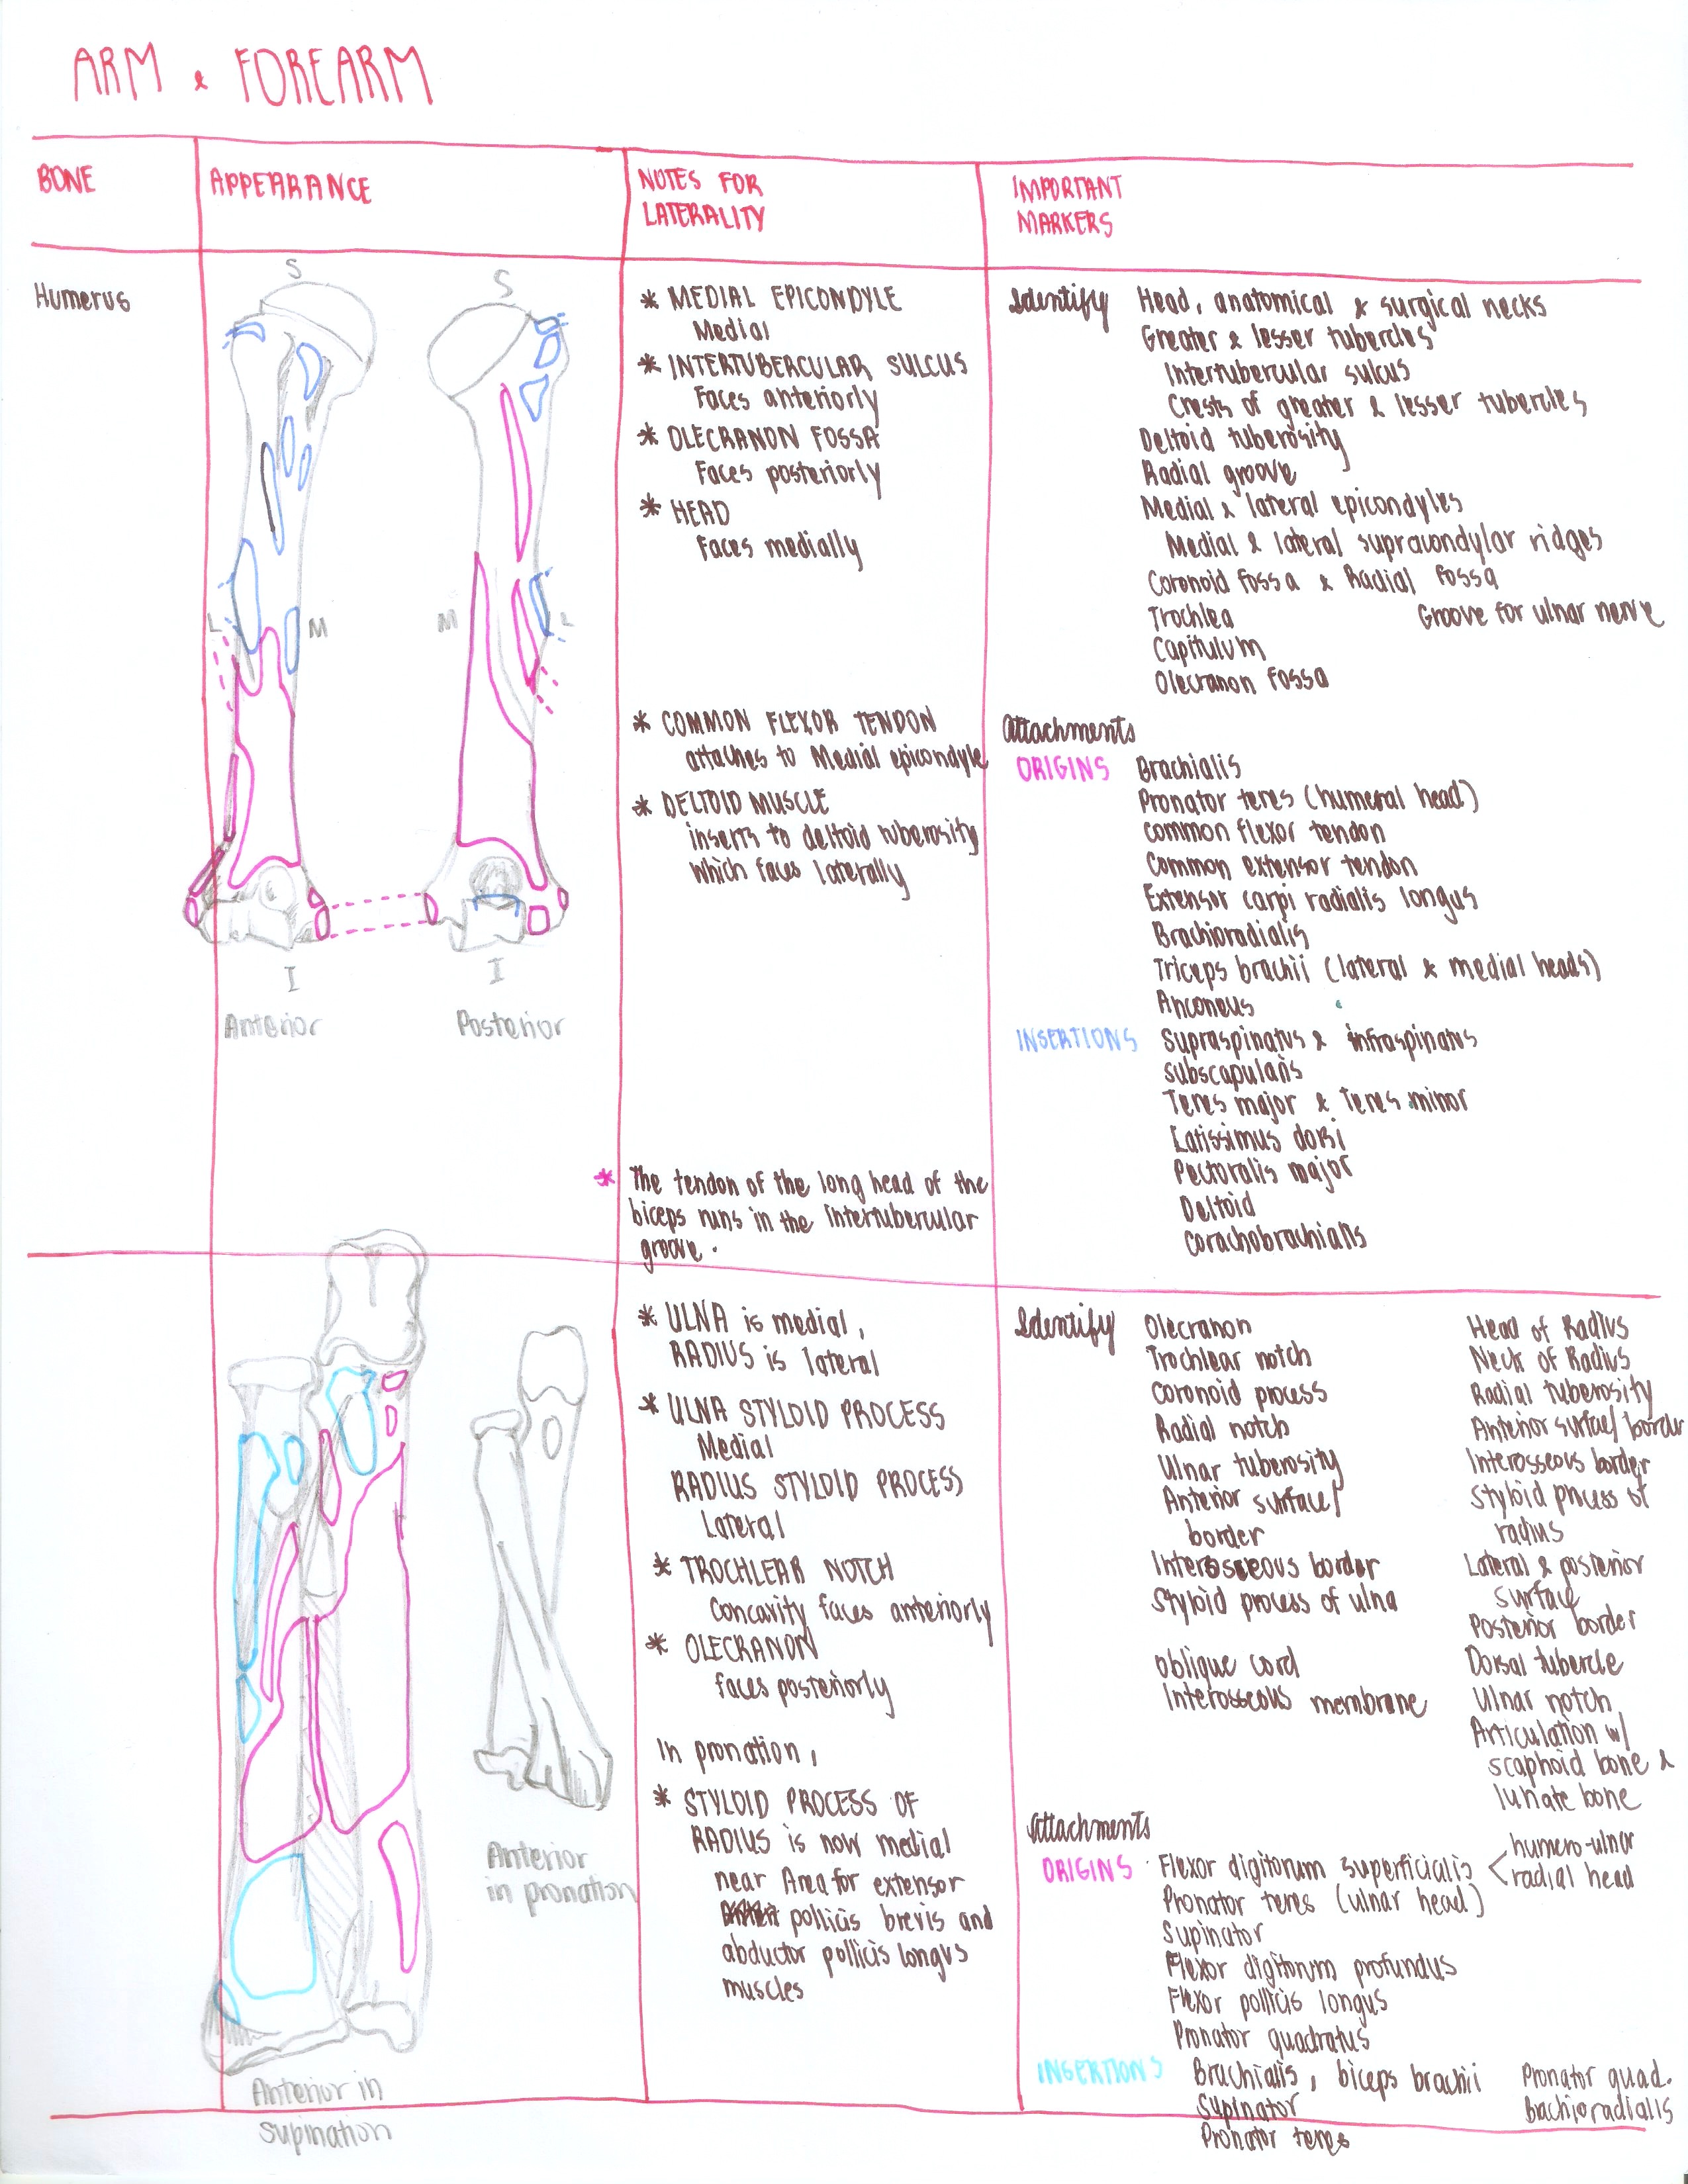 ARM & FOREARM
BONE
APPEARANCE
NOTES FOR
LATERALITY
IMPORTANT
MARKERS
Humerus
S
S
L
M
M
L
I
I
Anterior
Posterior
* MEDIAL EPICONDYLE
Medial
* INTERTUBERCULAR SULCUS
Faces anteriorly
* OLECRANON FOSSA
Faces posteriorly
* HEAD
Faces medially
* COMMON FLEXOR TENDON
attaches to Medial epicondyle
* DELTOID MUSCLE
inserts to deltoid tuberosity
which faces laterally
* The tendon of the long head of the
biceps runs in the intertubercular
groove.
Identify
Head, anatomical & surgical necks
Greater & lesser tubercles
Intertubercular sulcus
Crests of greater & lesser tubercles
Deltoid tuberosity
Radial groove
Medial & lateral epicondyles
Medial & lateral supracondylar ridges
Coronoid fossa & Radial fossa
Trochlea
Groove for ulnar nerve
Capitulum
Olecranon fossa
Attachments
ORIGINS
Brachialis
Pronator teres (humeral head)
Common flexor tendon
Common extensor tendon
Extensor carpi radialis longus
Brachioradialis
Triceps brachii (lateral & medial heads)
Anconeus
INSERTIONS
Supraspinatus & infraspinatus
Subscapularis
Teres major & Teres minor
Latissimus dorsi
Pectoralis major
Deltoid
Corachobrachialis
Anterior in
supination
Anterior
in pronation
* ULNA is medial,
RADIUS is lateral
* ULNA STYLOID PROCESS
Medial
RADIUS STYLOID PROCESS
Lateral
* TROCHLEAR NOTCH
Concavity faces anteriorly
* OLECRANON
faces posteriorly
In pronation,
* STYLOID PROCESS OF
RADIUS is now medial
near Area for extensor
pollicis brevis and
abductor pollicis longus
muscles
Identify
Olecranon
Trochlear notch
Coronoid process
Radial notch
Ulnar tuberosity
Anterior surface/
border
Interosseous border
Styloid process of ulna
Oblique cord
Interosseous membrane
Head of Radius
Neck of Radius
Radial tuberosity
Anterior surface/border
Interosseous border
Styloid process of
radius
Lateral & posterior
surface
Posterior border
Dorsal tubercle
Ulnar notch
Articulation w/
scaphoid bone &
lunate bone
Attachments
ORIGINS
Flexor digitorum superficialis < humero-ulnar
radial head
Pronator teres (ulnar head)
Supinator
Flexor digitorum profundus
Flexor pollicis longus
Pronator quadratus
INSERTIONS
Brachialis, biceps brachii
Supinator
Pronator teres
Pronator quad.
Bachioradialis